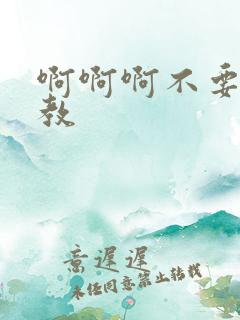 啊啊啊不要
教
意遲遲
未经同意禁止转载